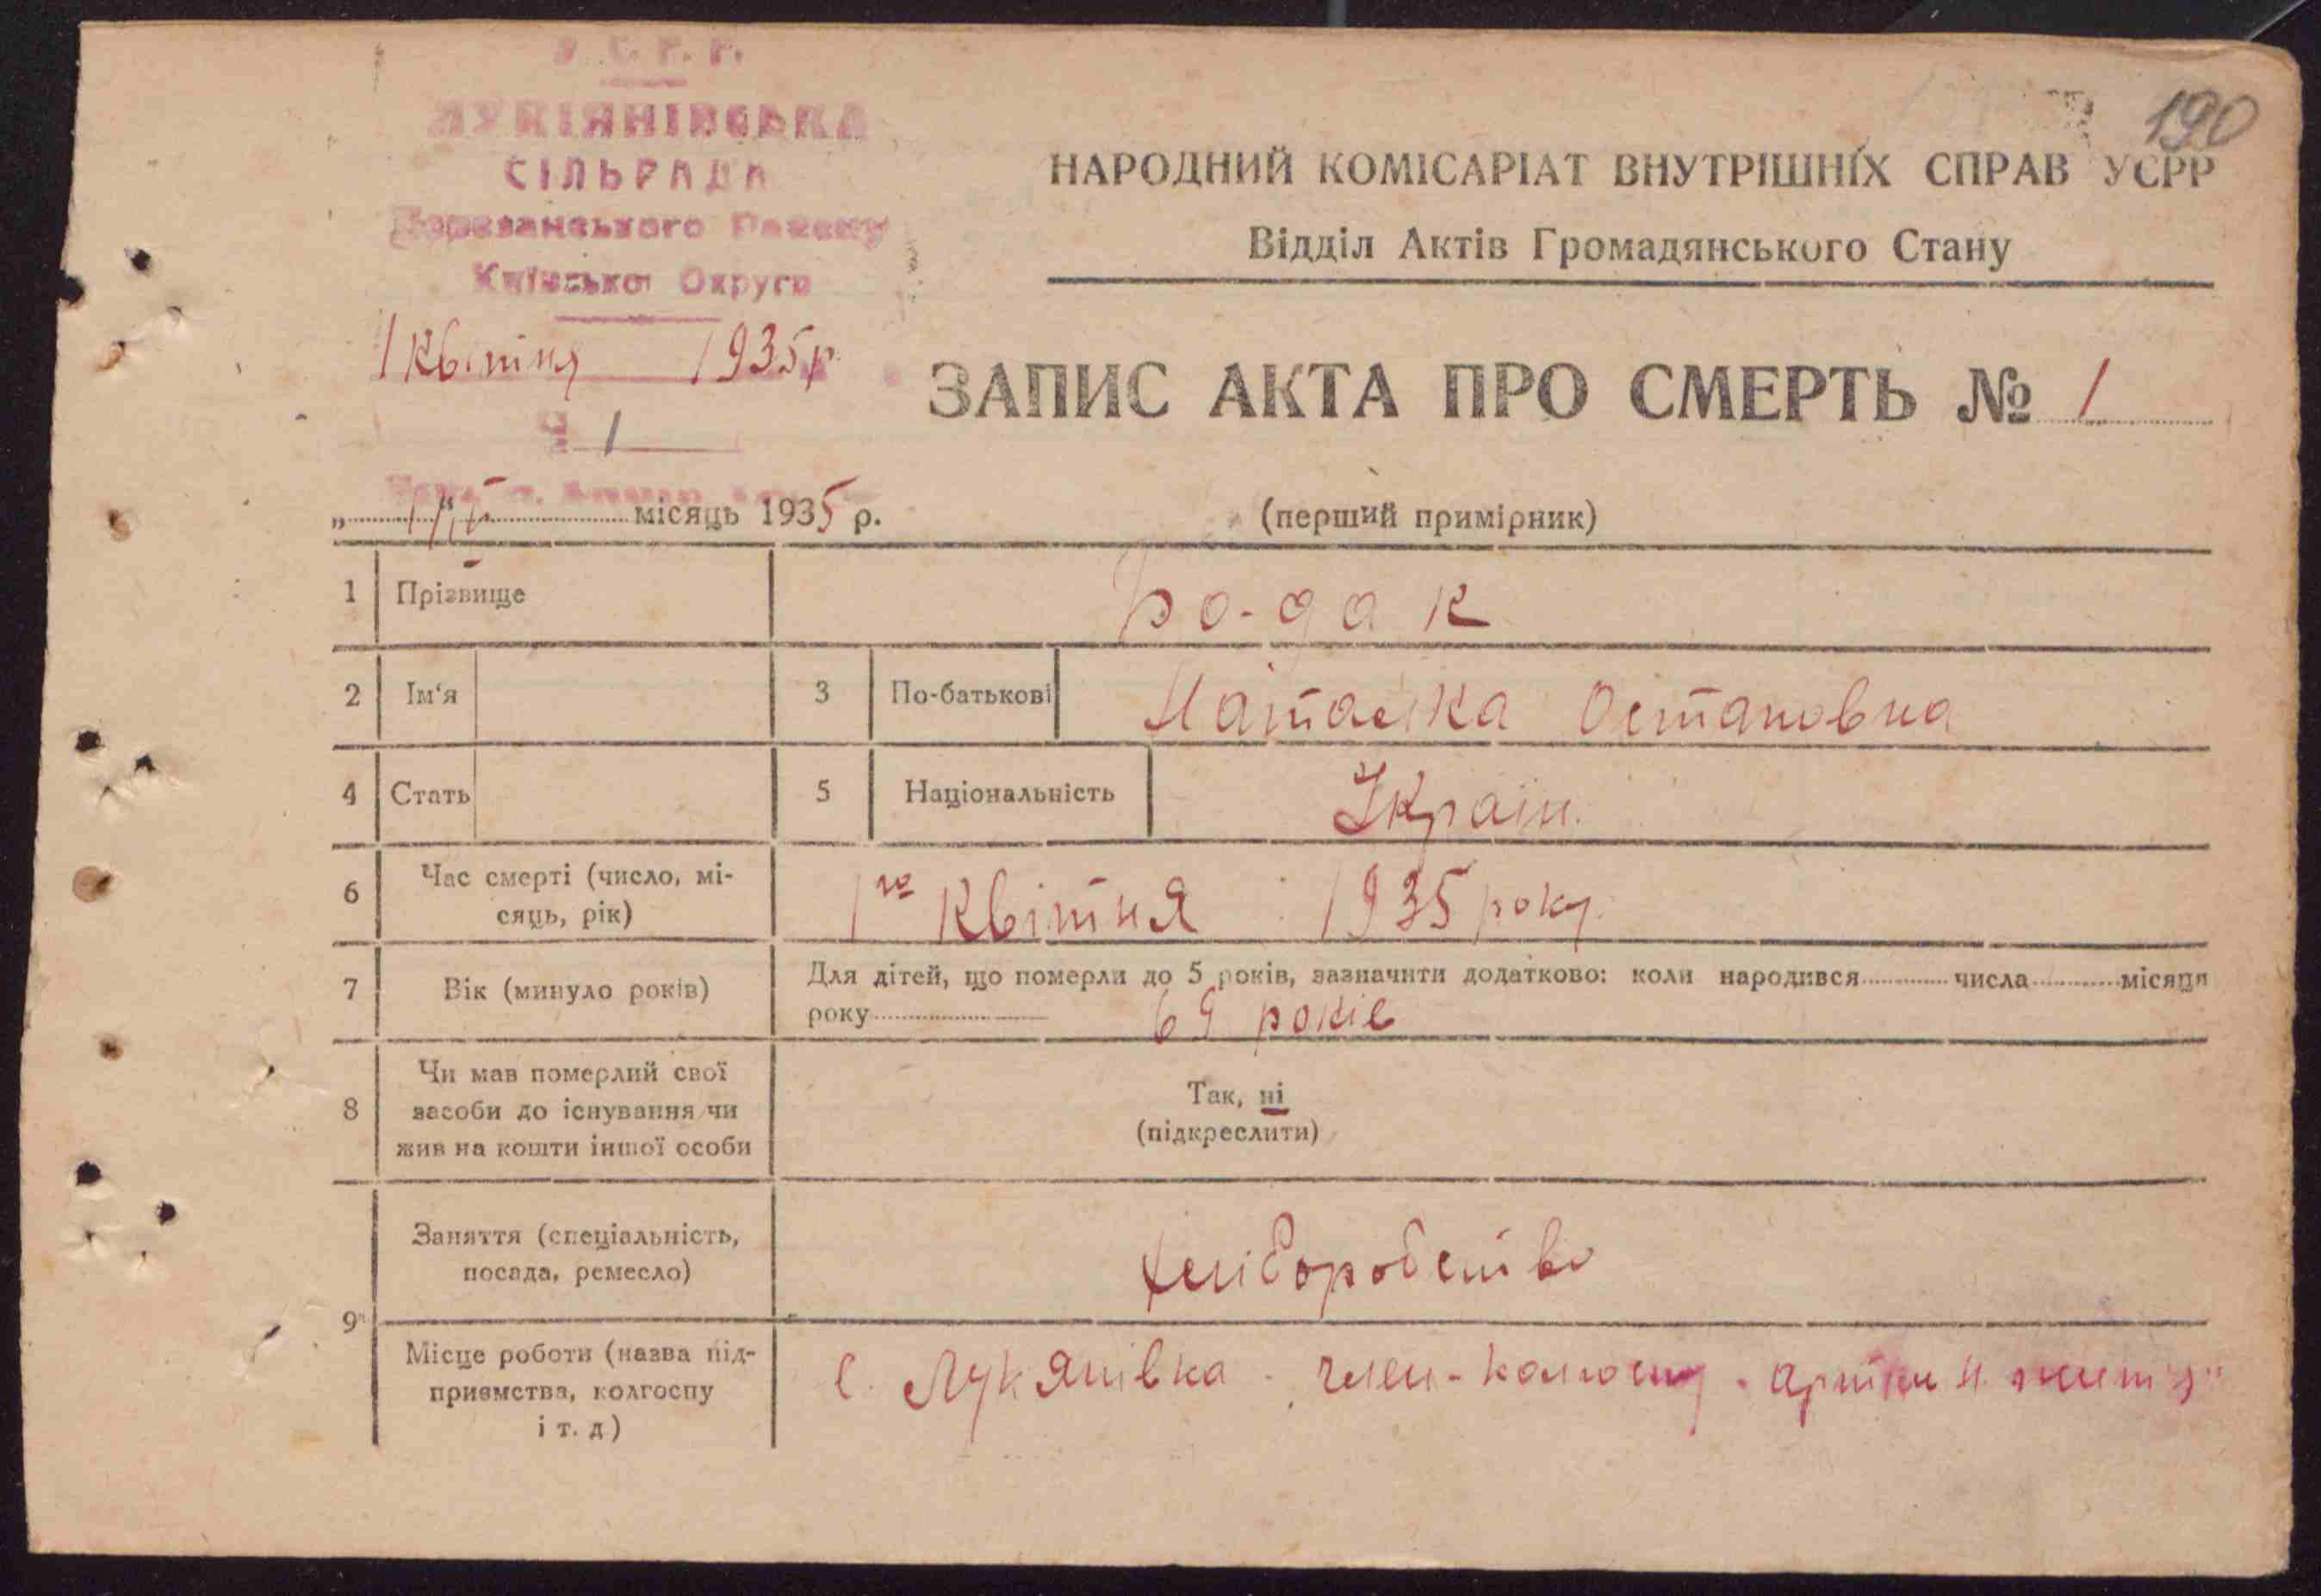 У. С. Р. Р.
ЛУКІЯНІВСЬКА
СІЛЬРАДА
Березанського Району
Київської Округи
1 Квітня 1935 р.
№ 1
190
НАРОДНИЙ КОМІСАРІАТ ВНУТРІШНІХ СПРАВ УСРР
Відділ Актів Громадянського Стану
ЗАПИС АКТА ПРО СМЕРТЬ № 1
„ 1 “ місяць 1935 р.
(перший примірник)
1 Прізвище Бо-дак
2 Ім‘я 3 По-батькові Наталка Остаповна
4 Стать 5 Національність Україн.
6 Час смерті (число, мі-
сяць, рік) 1го Квітня 1935 року
7 Вік (минуло років) Для дітей, що померли до 5 років, зазначити додатково: коли народився числа місяця
року 69 років
8 Чи мав померлий свої
засоби до існування чи
жив на кошти іншої особи
Так, ні
(підкреслити)
9 Заняття (спеціальність,
посада, ремесло) хліборобство
Місце роботи (назва під-
приємства, колгоспу
і т. д) с. Лукянівка член-колгоспу